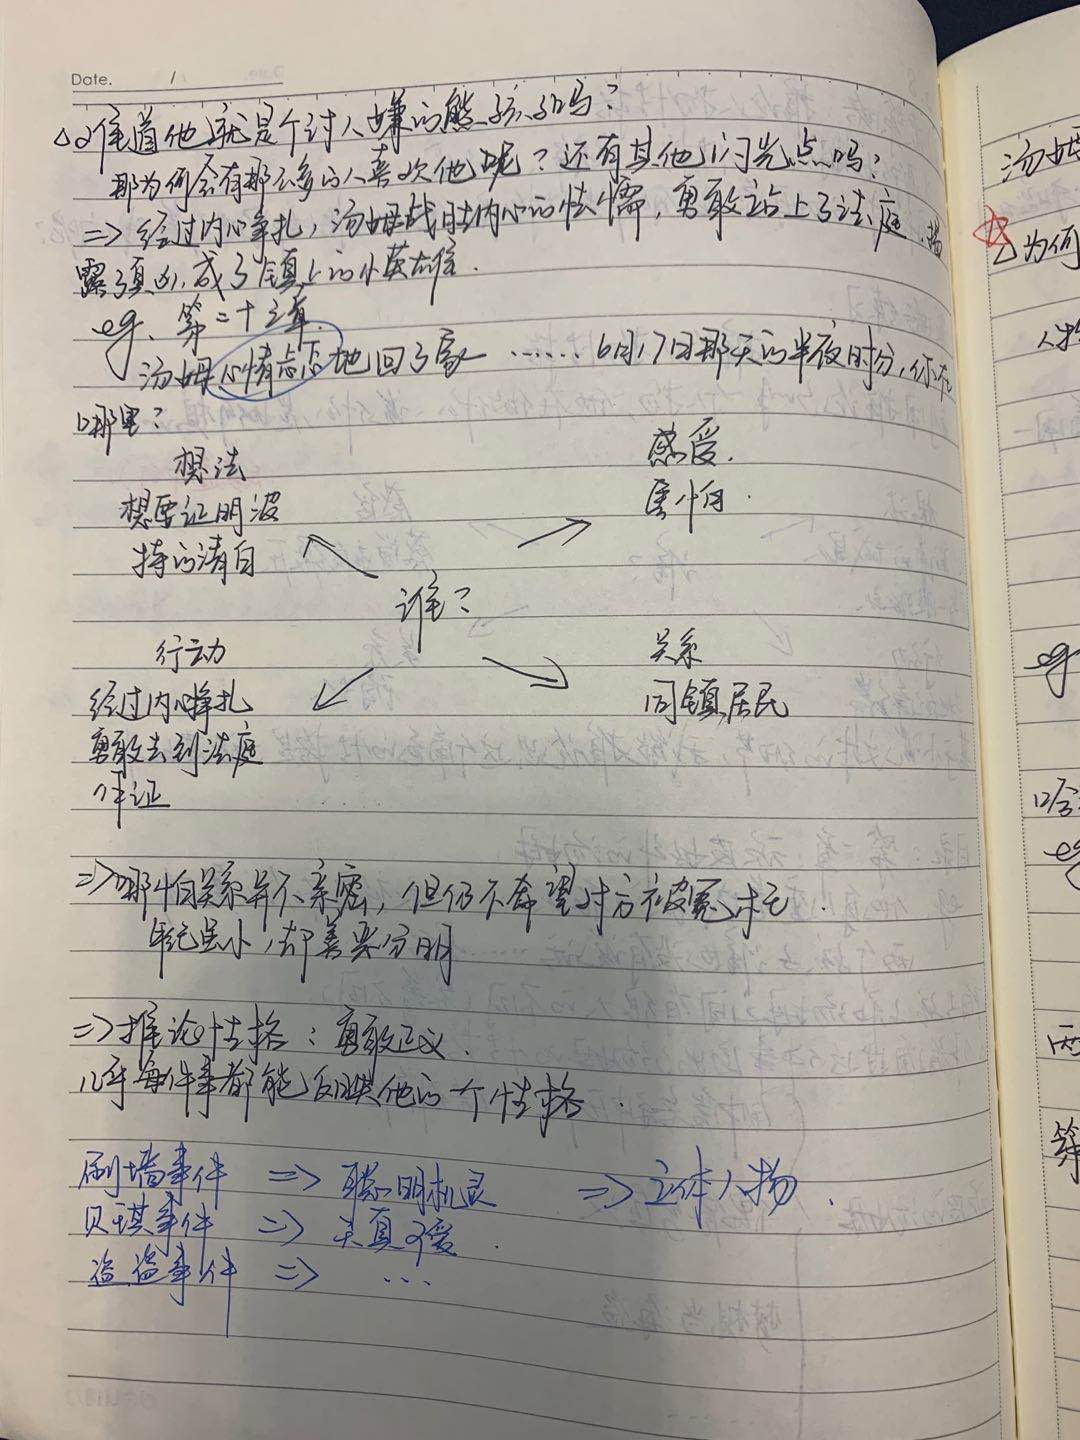 Date. /
难道他就是个讨人嫌的熊孩子吗？
那为何会有那么多的人喜欢他呢？还有其他闪光点吗？
=> 经过内心争扎，汤姆战胜内心的怯懦，勇敢站上了法庭，揭
露了真凶，成了镇上的小英雄.
eg. 第二十三章.
汤姆心情忐忑地回了家 …… 6月17日那天的半夜时分，你在
哪里？
想法
感受.
想要证明波
害怕.
特的清白
谁？
行动
关系
经过内心挣扎
同镇居民
勇敢去到法庭
作证
=> 哪怕关系并不亲密，但仍不希望对方被冤枉.
年纪虽小，却善恶分明
=> 推论性格：勇敢正义.
几乎每件事都能反映他的一个性格.
刷墙事件 => 聪明机灵 => 立体人物.
贝琪事件 => 天真可爱.
盗事件 => …
汤姆
为何
人物
eg
eg
两
第